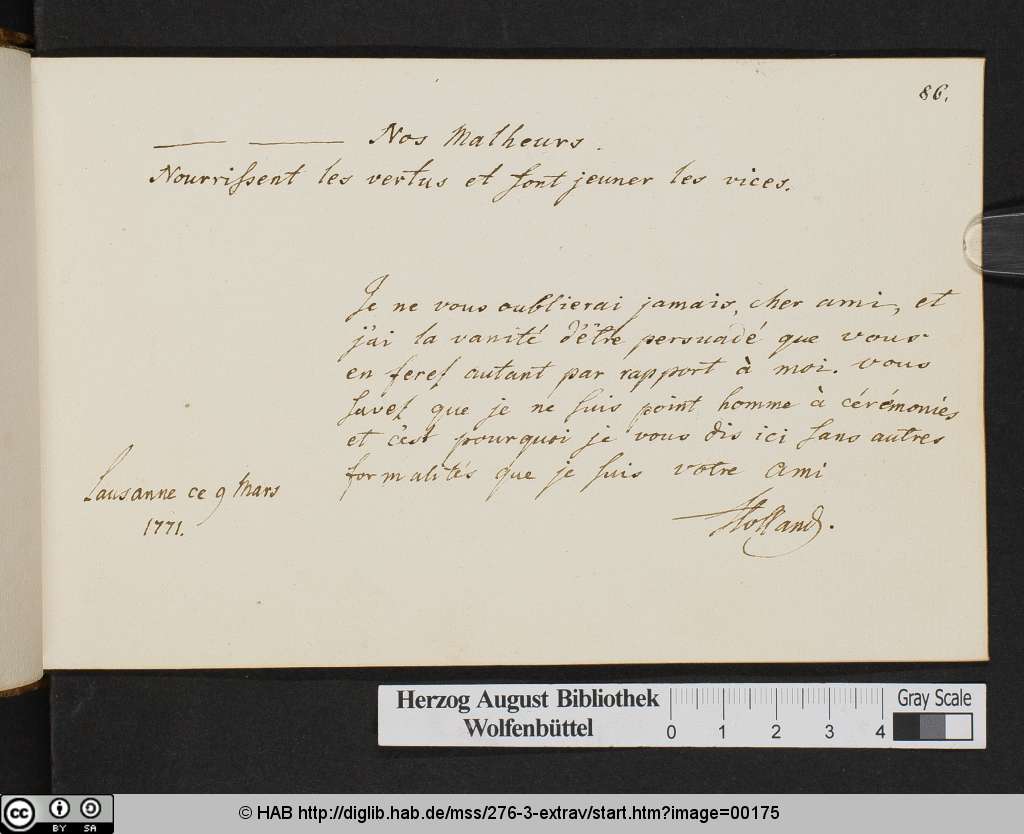 86.
— — Nos Malheurs.
Nourrissent les vertus et font jeuner les vices.
Je ne vous oublierai jamais, cher ami, et
j'ai la vanité d'être persuadé que vous
en ferez autant par rapport à moi. vous
savez que je ne suis point homme à cérémonies
et c'est pourquoi je vous dis ici sans autres
formalités que je suis votre ami
Holland.
Lausanne ce 9 Mars
1771.
Herzog August Bibliothek
Wolfenbüttel
0 1 2 3 4
Gray Scale
cc BY SA
© HAB http://diglib.hab.de/mss/276-3-extrav/start.htm?image=00175